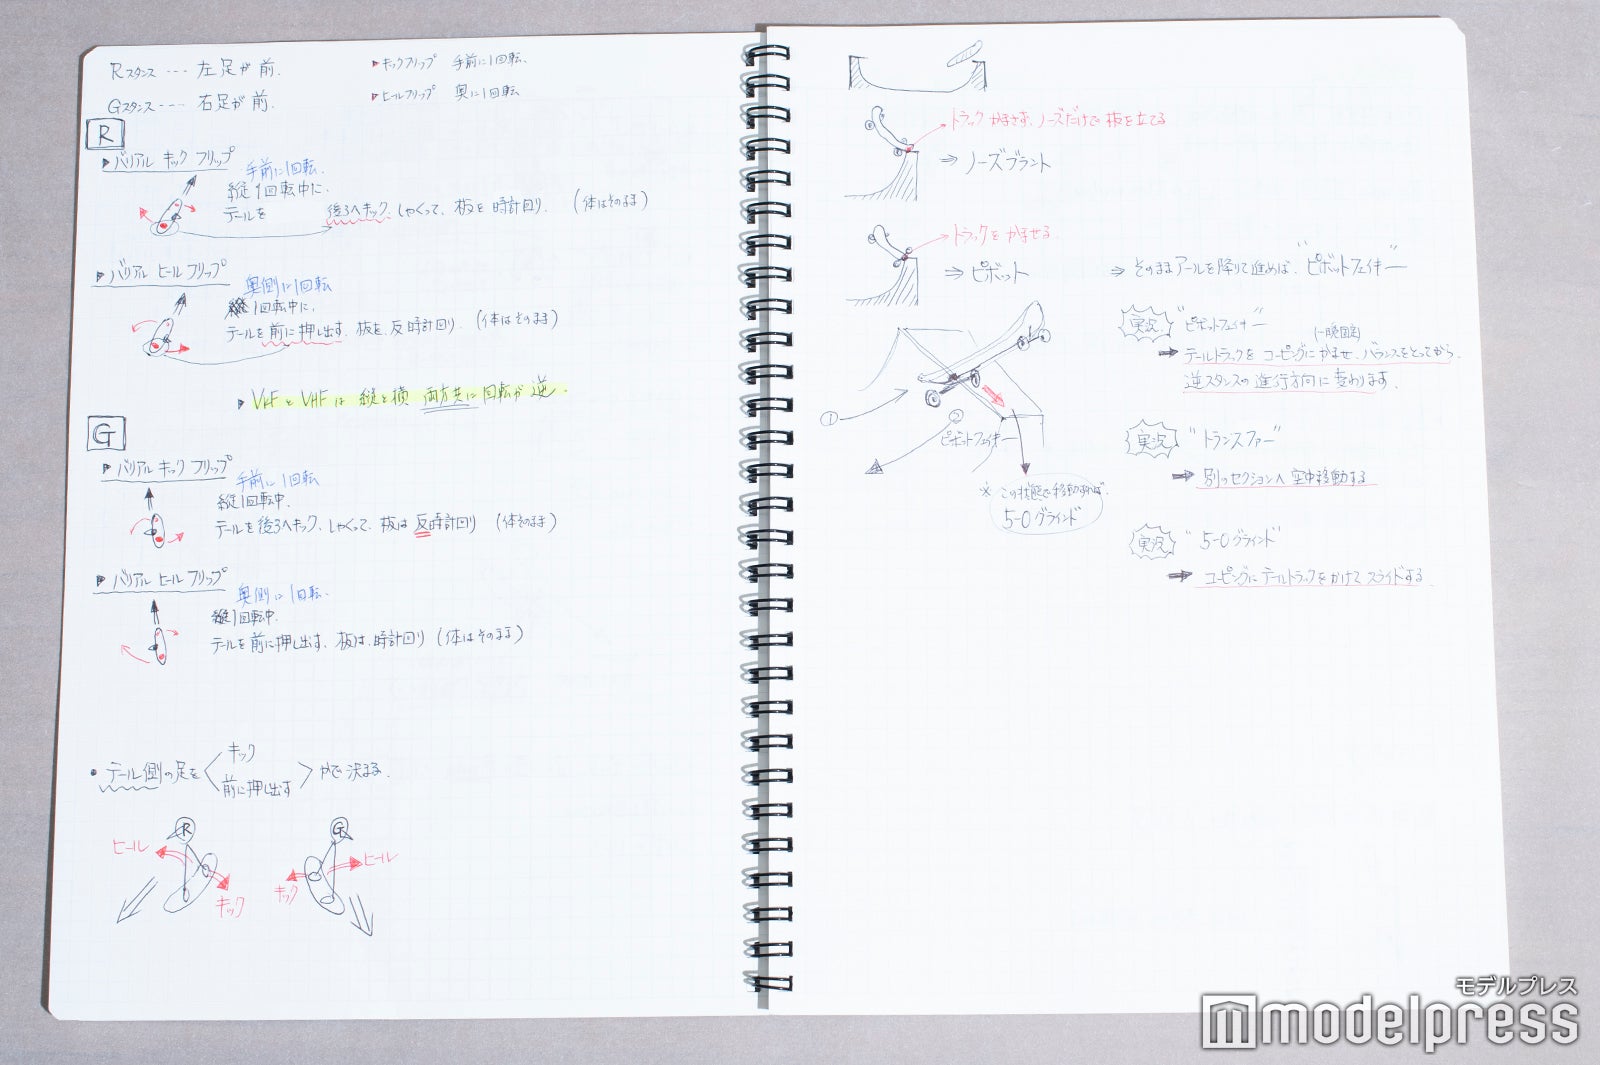 Rスタンス --- 左足が前.
Gスタンス ---- 右足が前.
▶キックフリップ 手前に1回転.
▶ヒールフリップ 奥に1回転
R
▶バリアル キック フリップ
手前に1回転.
縦1回転中に.
テールを 後ろへキック、しゃくって、板を 時計回り. (体はそのまま)
▶バリアル ヒール フリップ
奥側に1回転
1回転中に.
テールを前に押し出す. 板を、反時計回り. (体はそのまま)
▶VKFとVHFは 縦と横 両方共に 回転が 逆.
G
▶バリアル キック フリップ
手前に1回転
縦1回転中.
テールを後ろへキック、しゃくって、板は 反時計回り (体そのまま)
▶バリアル ヒール フリップ
奥側に1回転.
縦1回転中.
テールを前に押し出す. 板は、時計回り (体はそのまま)
• テール側の足を キック 前に押し出す かで決まる.
R
ヒール
キック
G
ヒール
キック
トラックかまさず、ノーズだけで板を立てる
⇒ ノーズブラント
トラックをかませる
⇒ ピボット
⇒ そのままアールを降りて進めば、"ピボットフェイキー"
①
②
ピボットフェイキー
※ この状態で移動すれば.
5-0グラインド
実況 "ピボットフェイキー"
(一瞬固定)
➡ テールトラックを コーピングにかませ、バランスをとってから.
逆スタンスの進行方向に変わります.
実況 "トランスファー"
➡ 別のセクションへ空中移動する
実況 "5-0グラインド"
➡ コーピングにテールトラックをかけてスライドする.
モデルプレス
modelpress